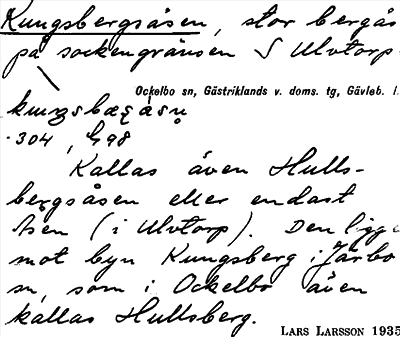 Kungsbergsåsen, stor bergås
på sockengränsen S Ulvtorp.
Ockelbo sn, Gästriklands v. doms. tg, Gävleb. l.
304, 498
Kallas även Hulls-
bergsåsen eller endast
Åsen (i Ulvtorp). Den ligge
mot byn Kungsberg i Järbo
sn, som i Ockelbo även
kallas Hullsberg.
LARS LARSSON 1935